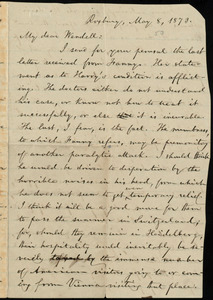 Roxbury, May 8, 1873.
My dear Wendell:
I send for your perusal the last
letter received from Fanny. Her state-
ment as to Harry's condition is afflict-
ing. The doctors either do not understand
his case, or know not how to treat it
successfully, or else it is incurable
The last, I fear, is the fact. The numbness,
to which Fanny refers, may be premonitory
of another paralytic attack. I should think
he would be driven to desperation by the
horrible noises in his head, from which
he does not seem to get temporary relief.
I think it will be a good move for them
to pass the summer in Switzerland;
for, should they remain in Heidelberg,
their hospitality would inevitably be se-
verely by the immense number
of American visitors going to or com-
ing from Vienna